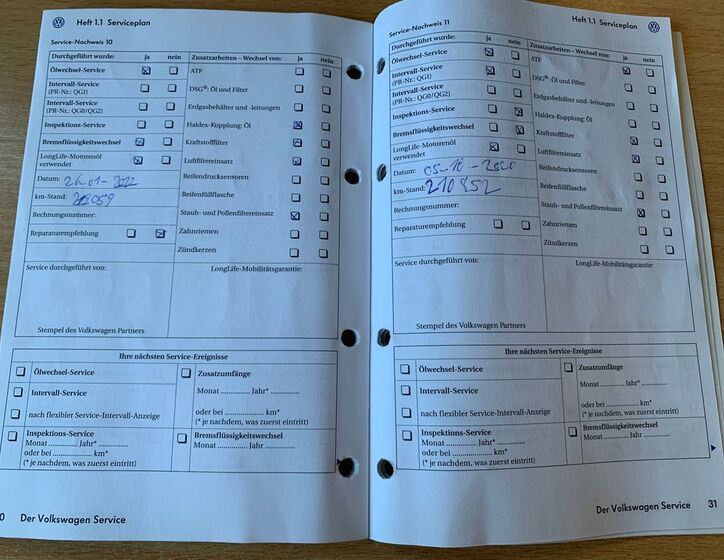 Heft 1.1 Serviceplan
Service-Nachweis 10
Durchgeführt wurde: ja nein
Ölwechsel-Service
Intervall-Service
(PR-Nr.: QG1)
Intervall-Service
(PR-Nr.: QG0/QG2)
Inspektions-Service
Bremsflüssigkeitswechsel
LongLife-Motorenöl
verwendet
Datum: 26-01-2022
km-Stand:
Rechnungsnummer:
Reparaturempfehlung
Zusatzarbeiten – Wechsel von: ja nein
ATF
DSG®: Öl und Filter
Erdgasbehälter und -leitungen
Haldex-Kupplung: Öl
Kraftstofffilter
Luftfiltereinsatz
Reifendrucksensoren
Reifenfüllflasche
Staub- und Pollenfiltereinsatz
Zahnriemen
Zündkerzen
Service durchgeführt von:
LongLife-Mobilitätsgarantie:
Stempel des Volkswagen Partners
Ihre nächsten Service-Ereignisse
Ölwechsel-Service
Intervall-Service
nach flexibler Service-Intervall-Anzeige
Inspektions-Service
Monat ............ Jahr* ............
oder bei ................ km*
(* je nachdem, was zuerst eintritt)
Zusatzumfänge
Monat ............ Jahr* ............
oder bei ................ km*
(* je nachdem, was zuerst eintritt)
Bremsflüssigkeitswechsel
Monat ............ Jahr ............
Der Volkswagen Service
Heft 1.1 Serviceplan
Service-Nachweis 11
Durchgeführt wurde: ja nein
Ölwechsel-Service
Intervall-Service
(PR-Nr.: QG1)
Intervall-Service
(PR-Nr.: QG0/QG2)
Inspektions-Service
Bremsflüssigkeitswechsel
LongLife-Motorenöl
verwendet
Datum: 05-10-2020
km-Stand: 210852
Rechnungsnummer:
Reparaturempfehlung
Zusatzarbeiten – Wechsel von: ja nein
ATF
DSG®: Öl und Filter
Erdgasbehälter und -leitungen
Haldex-Kupplung: Öl
Kraftstofffilter
Luftfiltereinsatz
Reifendrucksensoren
Reifenfüllflasche
Staub- und Pollenfiltereinsatz
Zahnriemen
Zündkerzen
Service durchgeführt von:
LongLife-Mobilitätsgarantie:
Stempel des Volkswagen Partners
Ihre nächsten Service-Ereignisse
Ölwechsel-Service
Intervall-Service
nach flexibler Service-Intervall-Anzeige
Inspektions-Service
Monat ............ Jahr* ............
oder bei ................ km*
(* je nachdem, was zuerst eintritt)
Zusatzumfänge
Monat ............ Jahr* ............
oder bei ................ km*
(* je nachdem, was zuerst eintritt)
Bremsflüssigkeitswechsel
Monat ............ Jahr ............
Der Volkswagen Service 31